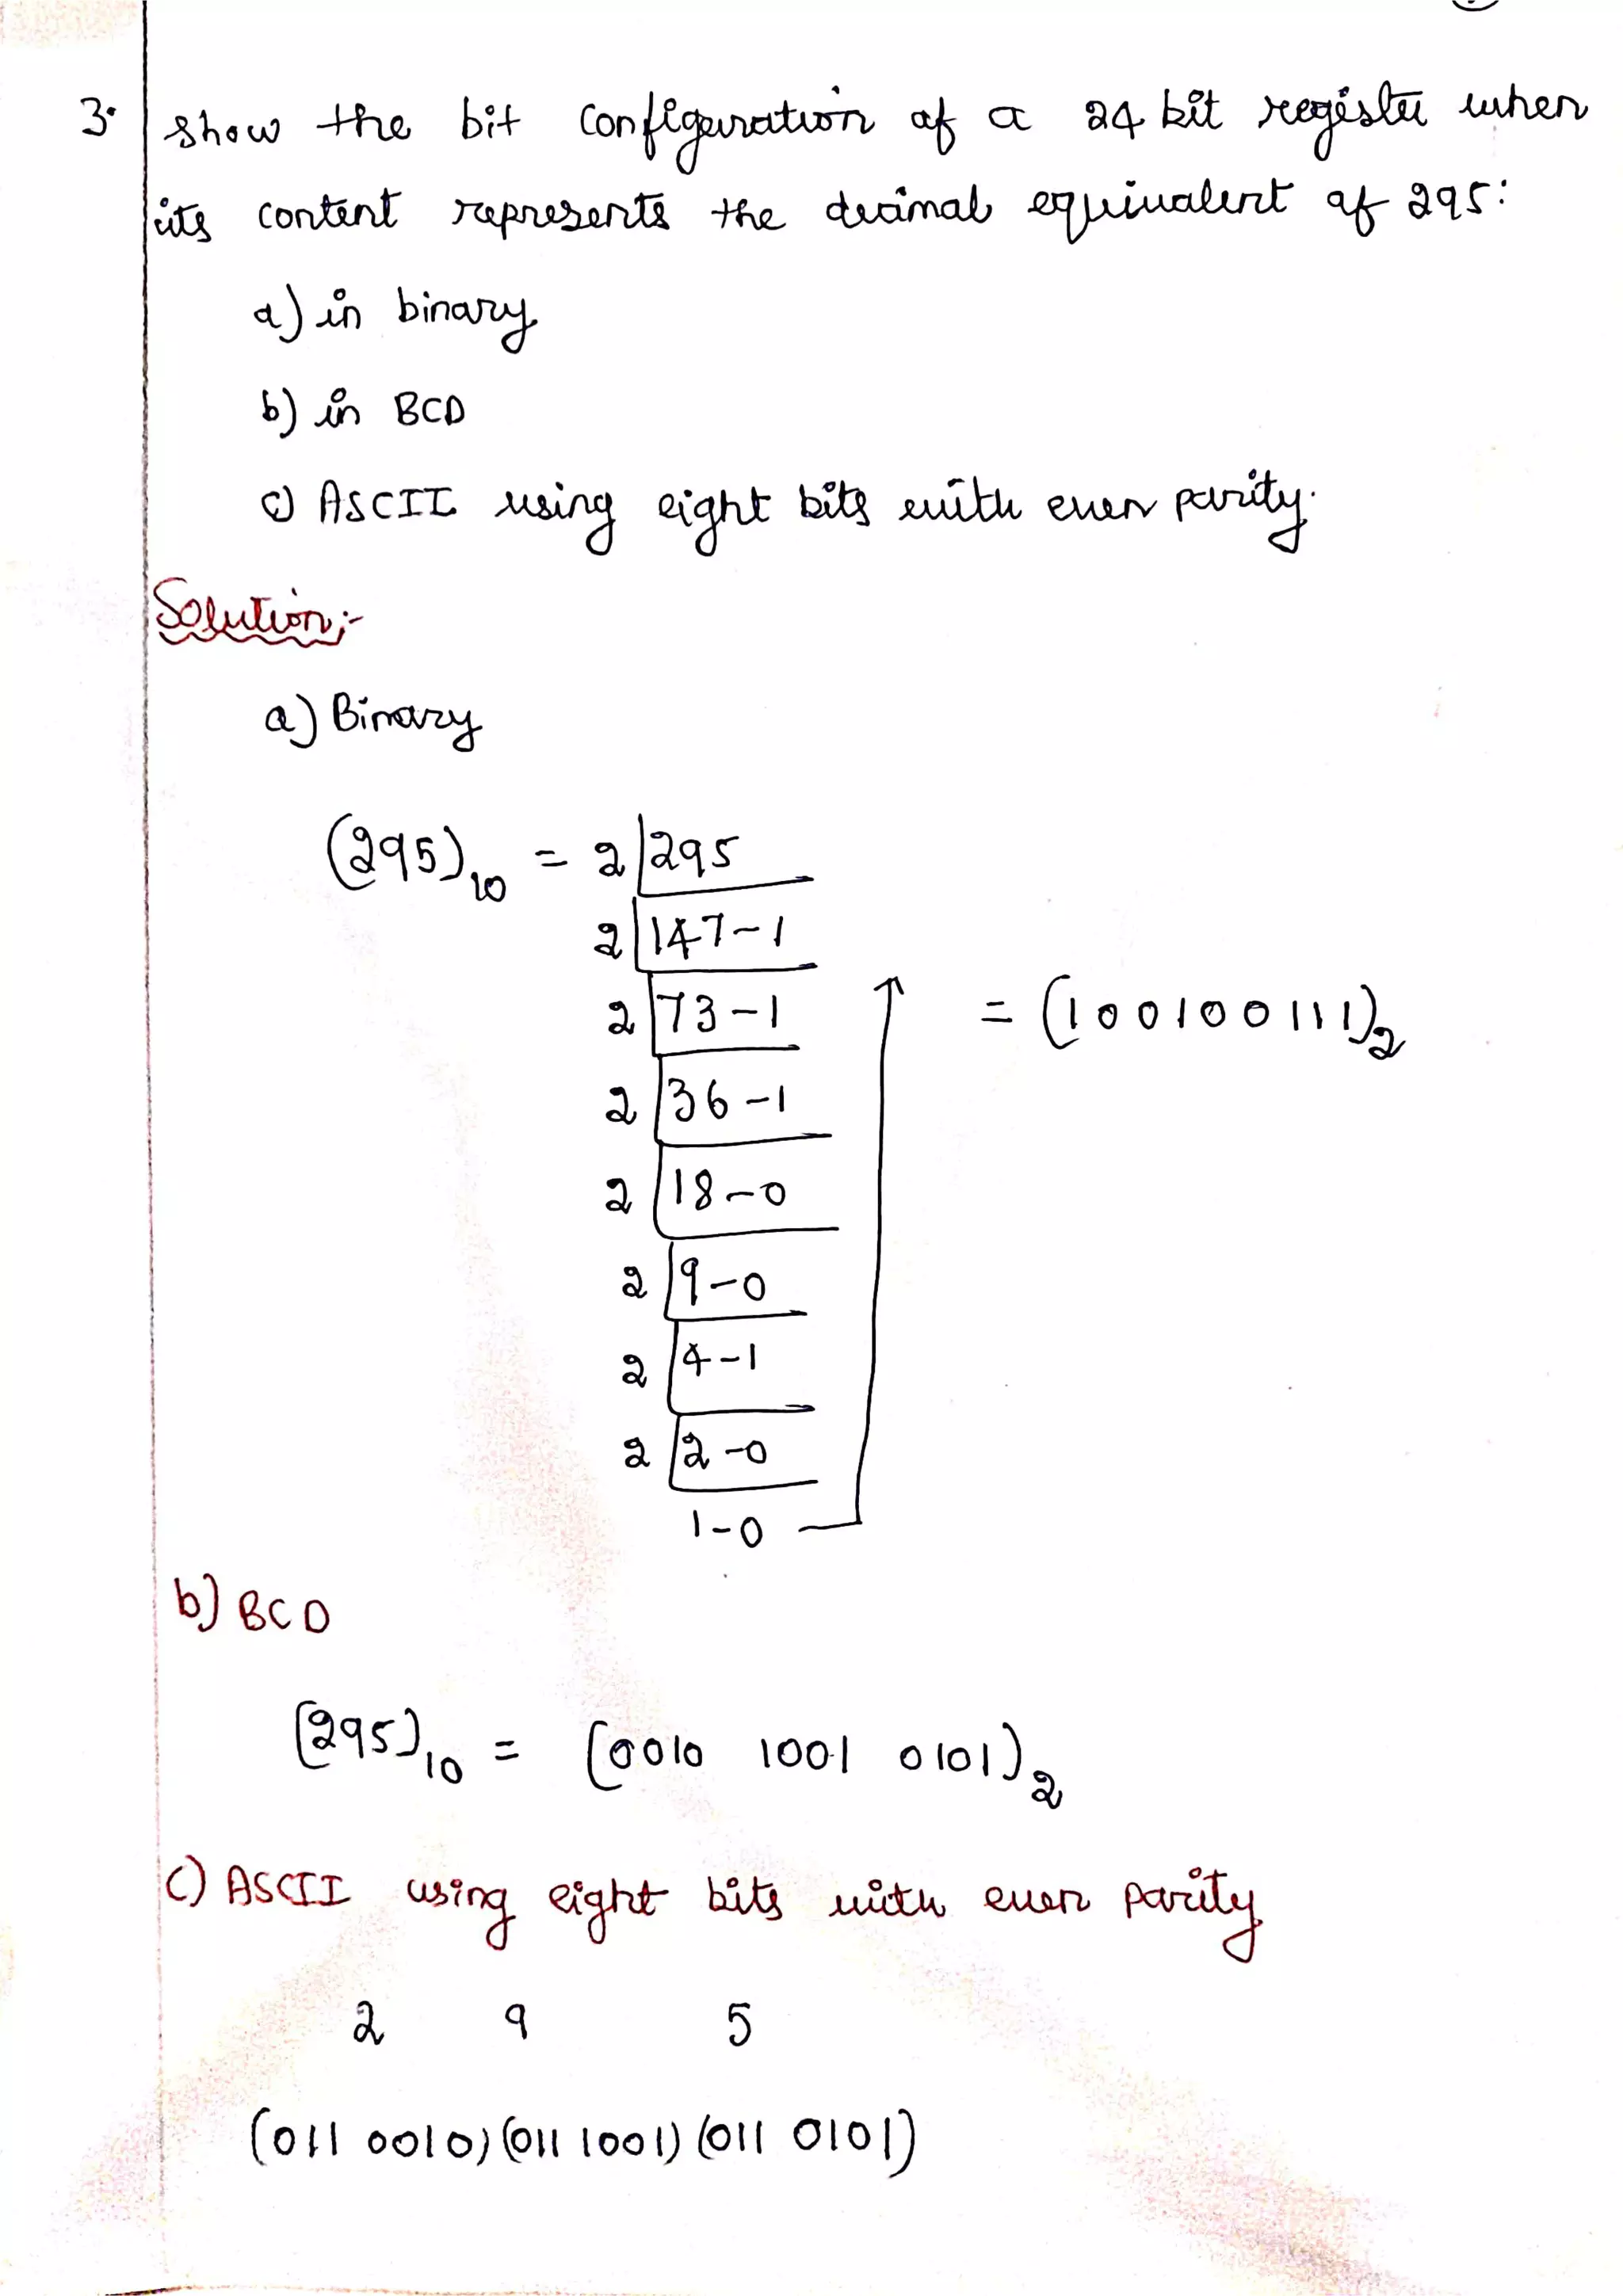 3. show the bit configuration of a 24 bit register when
its content represents the decimal equivalent of 295:
a) in binary
b) in BCD
c) ASCII using eight bits with even parity.
Solution:-
a) Binary
(295)10 = 2 295
2 147-1
2 73-1 = (100100111)2
2 36-1
2 18-0
2 9-0
2 4-1
2 2-0
1-0
b) BCD
(295)10 = (0010 1001 0101)2
c) ASCII using eight bits with even parity
2 9 5
(011 0010) (011 1001) (011 0101)